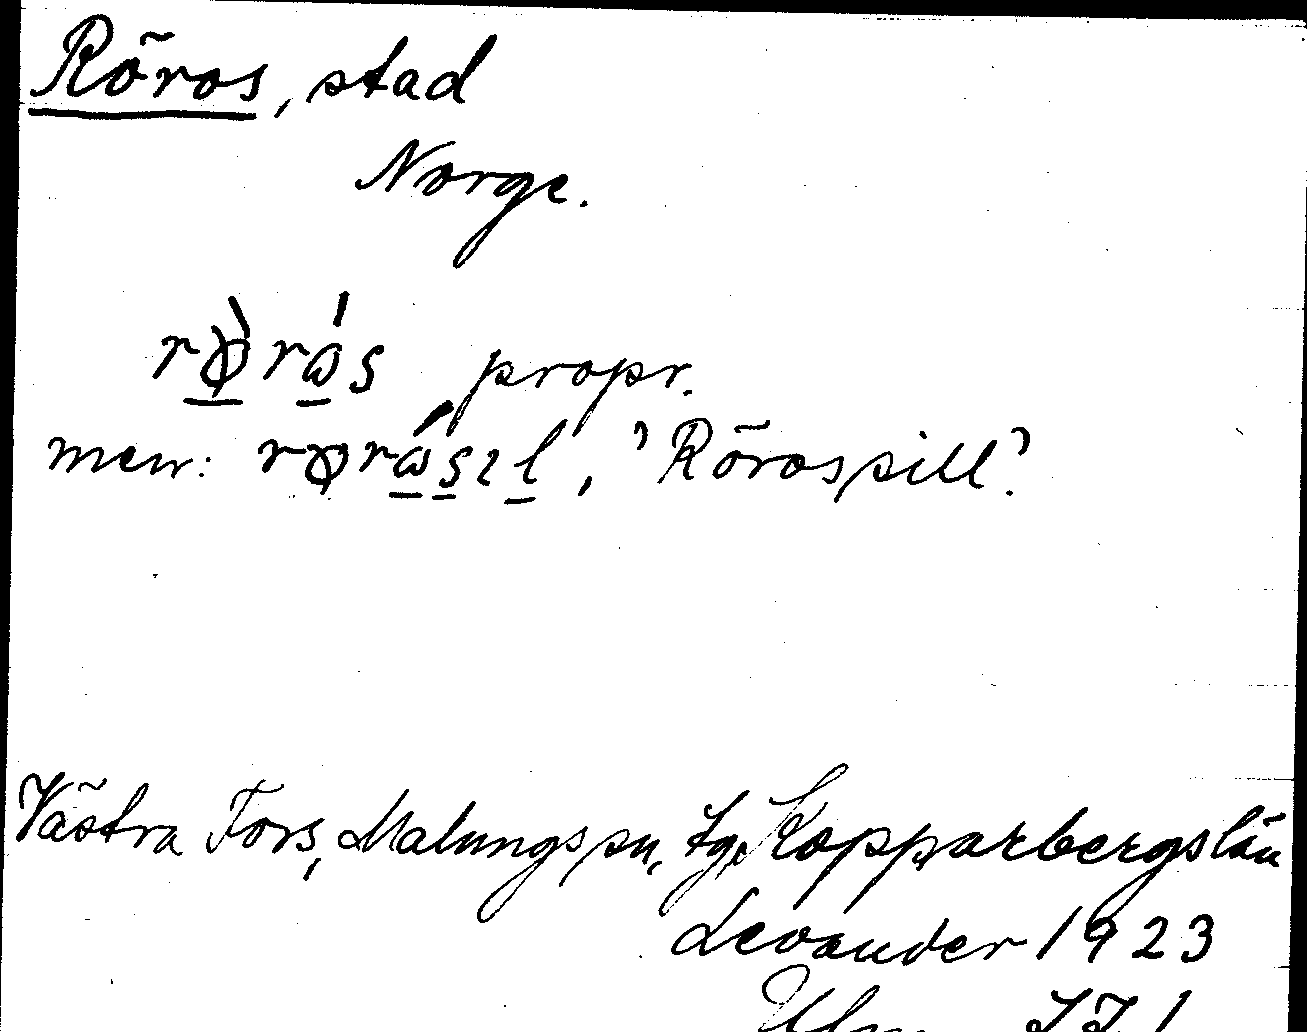 Röros, stad
Norge.
propr.
men: , 'Rörossill'.
Västra Fors, Malungs sn, Kopparbergs län
Levander 1923